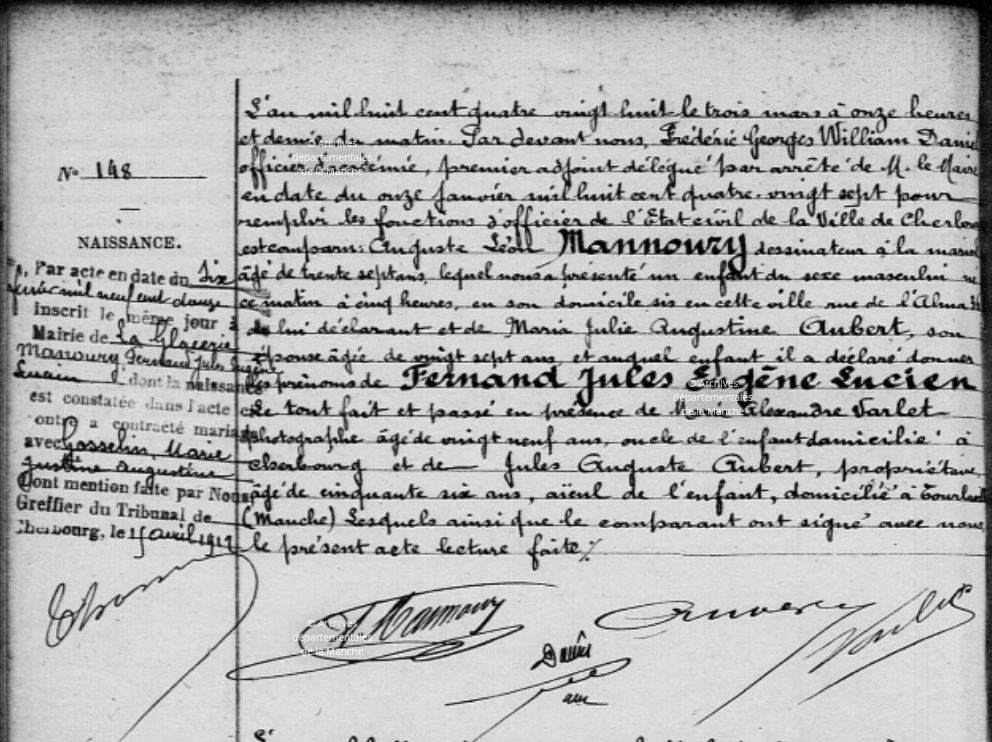 N° 148
NAISSANCE.
Par acte en date du Six
mil neuf cent douze
inscrit le même jour à
Mairie de La Glacerie
Manoury Fernand Jules Eugène
Lucien dont la naissance
est constatée dans l'acte
a contracté mariage
avec Gosselin, Marie
Justine Augustine
Dont mention faite par Nous
Greffier du Tribunal de
Cherbourg, le 15 avril 1912
L'an mil huit cent quatre vingt huit le trois mars à onze heures
et demie du matin. Par devant nous, Frédéric Georges William Daniel
officier d'académie, premier adjoint délégué par arrêté de M. le Maire
en date du onze Janvier mil huit cent quatre-vingt sept pour
remplir les fonctions d'officier de l'État civil de la Ville de Cherbourg
est comparu: Auguste Léon Mannoury dessinateur à la marine
âgé de trente sept ans, lequel nous a présenté un enfant du sexe masculin né
ce matin à cinq heures, en son domicile sis en cette ville rue de l'Alma
de lui déclarant et de Maria Julie Augustine Aubert, son
épouse âgée de vingt sept ans, et auquel enfant il a déclaré donner
les prénoms de Fernand Jules Eugène Lucien
Le tout fait et passé en présence de Alexandre Varlet
photographe âgé de vingt neuf ans, oncle de l'enfant domicilié à
Cherbourg et de Jules Auguste Aubert, propriétaire,
âgé de cinquante six ans, aïeul de l'enfant, domicilié à Tourlaville
(Manche) Lesquels ainsi que le comparant ont signé avec nous
le présent acte lecture faite ./.
Mannoury
Varlet
© Archives
départementales
de la Manche
© Archives
départementales
de la Manche
© Archives
départementales
de la Manche